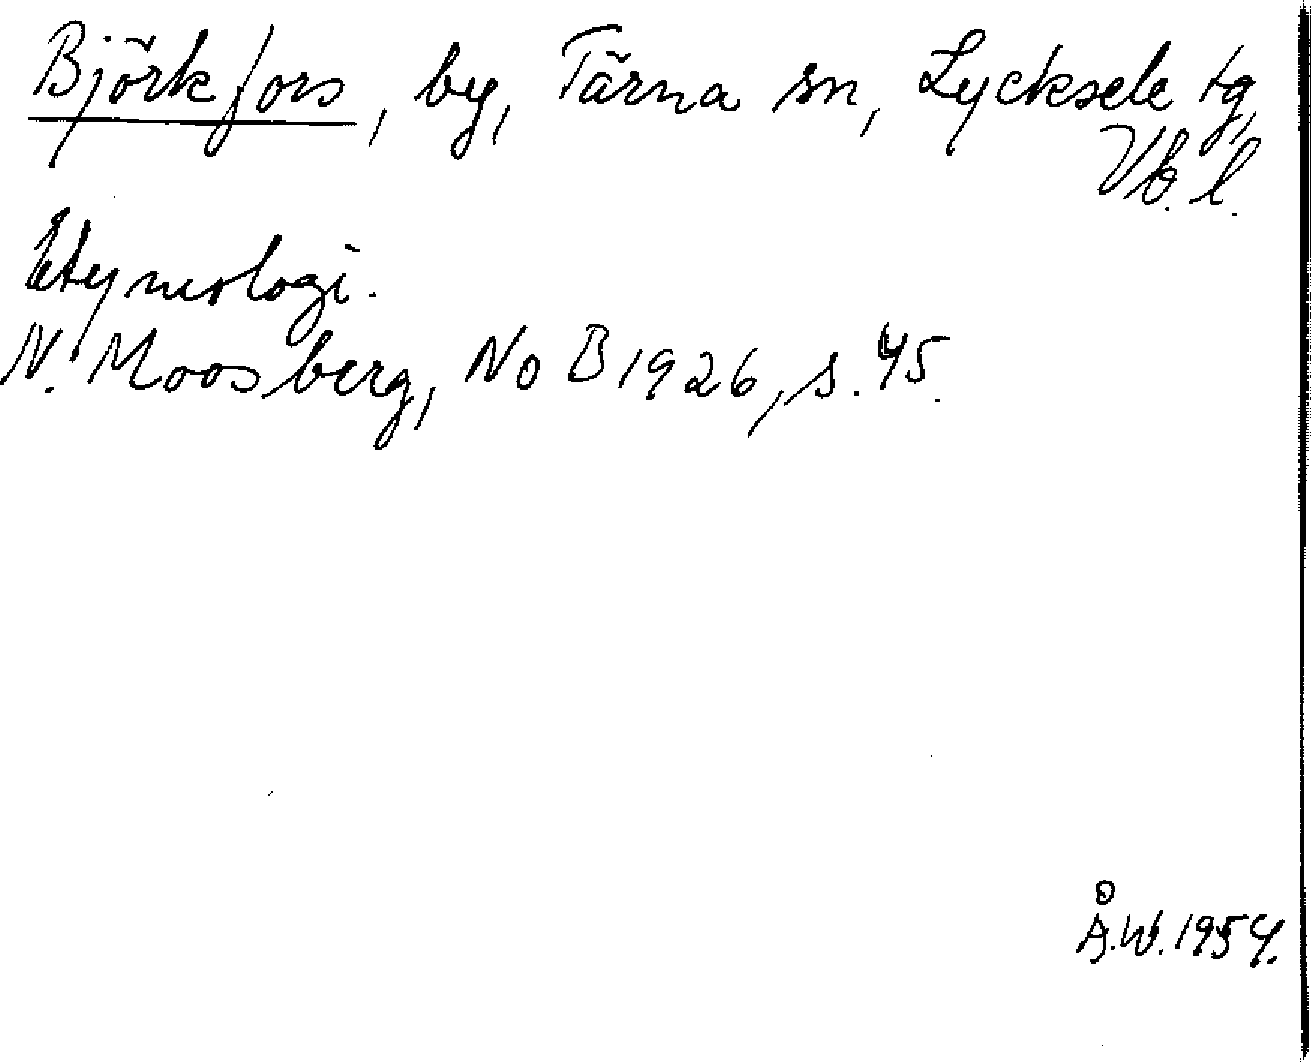 Björkfors, by, Tärna sn, Lycksele tg,
Vb. l.
Etymologi.
N. Moosberg, NoB 1926, s. 45.
Å.W. 1954.